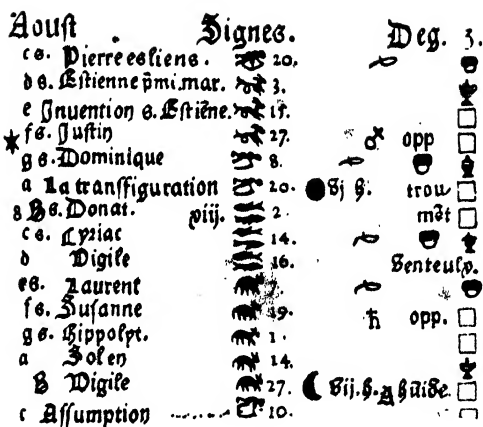 Aoust Signes. Deg. 3.
c s. Pierre es liens. 20.
d s. Estienne p̄mi. mar. 3.
e Inuention s. Estiēne. 15.
f s. Justin 27. opp
g s. Dominique 8.
a La transfiguration 20. Bj h. trou
8 B s. Donat. viij. 2. mēt
c s. Cyriac 14.
d Vigile 16. Senteulx.
e s. Laurent 7.
f s. Susanne 19. opp.
g s. Hippolyt. 1.
a Sol en 14.
B Vigile 27. Bij. h.
c Assumption 10.